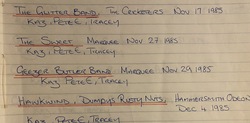 The Glitter Band The Cricketers Nov 17 1985
Kaz, Pete E, Tracey
The Sweet Marquee Nov 27 1985
Kaz, Pete E, Tracey
Geezer Butler Band Marquee Nov 29 1985
Kaz, Pete E, Tracey
Hawkwind, Dumpys Rusty Nuts, Hammersmith Odeon
Dec 4 1985
Kaz, Pete E, Tracey